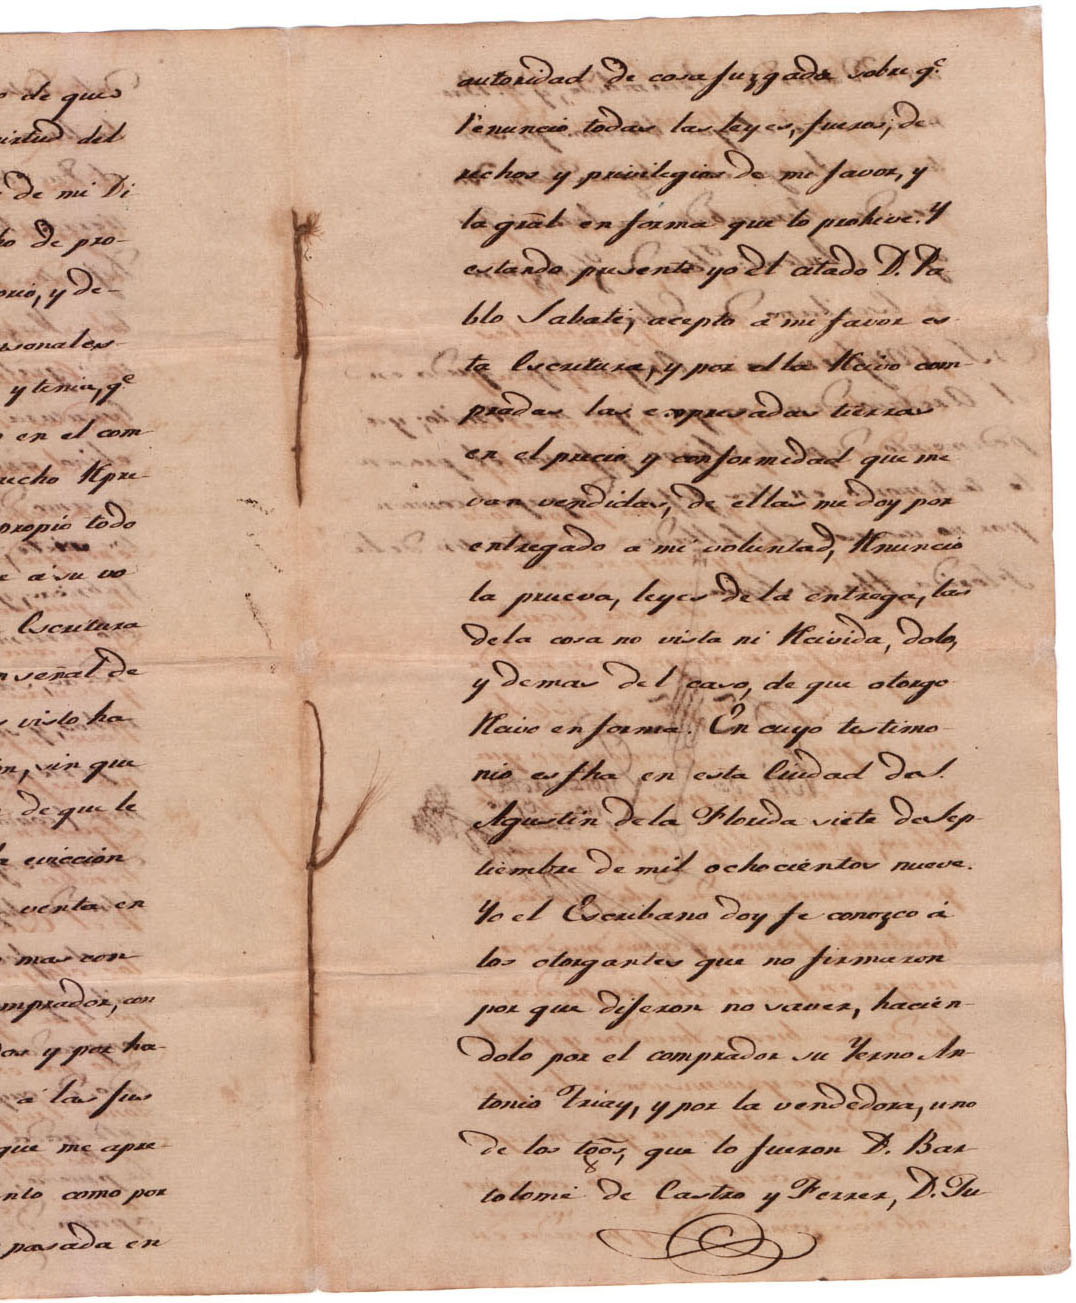 de que
virtud del
de mi Di
ho de pro-
orio, y de-
rsonales
y tenia, q.e
en el com-
echo Rpre-
propio todo
e a su vo
Escritura
n señal de
s visto ha
on, sin que
de que le
evicción
venta en
mas con
omprador, con
dos y por ha-
a las Jus
que me apre-
nto como por
pasada en
autoridad de cosa Juzgada sobre q.e
renuncio todas las leyes, fueros, de
rechos y privilegios de mi favor, y
la grâl en forma que lo prohive. Y
estando presente yo el citado D. Pa
blo Sabate, acepto á mi favor es
ta Escritura, y por ella Rcivo com-
pradas las expresadas tierras
en el precio y conformidad que me
van vendidas, de ellas me doy por
entregado a mi voluntad, Rnuncio
la prueva, leyes de la entrega, las
dela cosa no vista ni Rcivida, dolo,
y demas del caso, de que otorgo
Rcivo en forma. En cuyo testimo-
nio es fha en esta Ciudad de S.
Agustin dela Florida siete de Sep-
tiembre de mil ochocientos nueve.
Yo el Escribano doy fe conozco á
los otorgantes que no firmaron
por que dijeron no saver, hacien-
dolo por el comprador su Yerno An-
tonio Triay, y por la vendedora, uno
de los tg̃os, que lo fueron D. Bar
tolomé de Castro y Ferrer, D. Ju